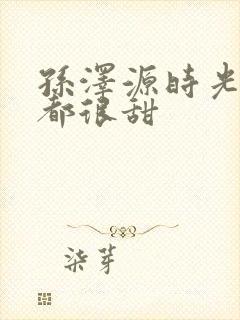 孫澤源時光
都很甜
柒芽